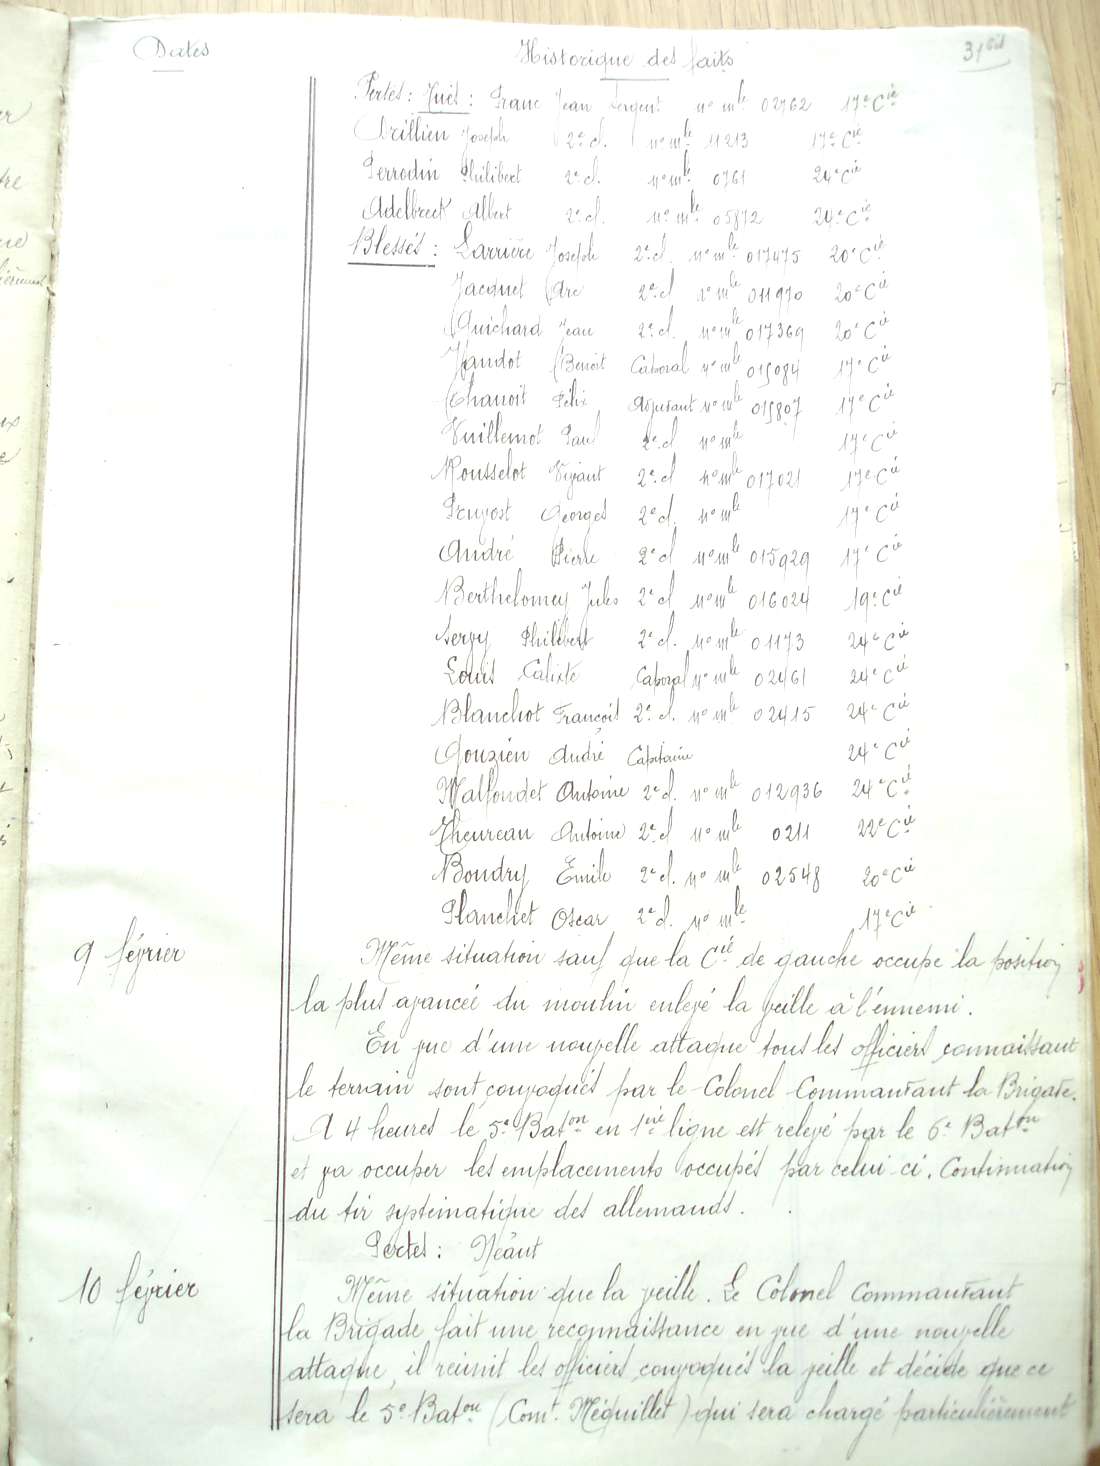 Dates
Historique des faits
31 bis
Pertes : Tués : Franc Jean Sergent n° mle 02762 17e Cie
Joseph 2e cl. n° mle 11213 17e Cie
Perrodin Philibert 2e cl. n° mle 0761 24e Cie
Adelbreck Albert 2e cl. n° mle 05872 24e Cie
Blessés : Larrière Joseph 2e cl. n° mle 017475 20e Cie
Jacquet 2e cl n° mle 011970 20e Cie
Guichard Jean 2e cl. n° mle 017369 20e Cie
Benoit Caporal n° mle 015084 17e Cie
Chanoit Félix Adjudant n° mle 015807 17e Cie
Vuillemot Paul 2e cl n° mle 17e Cie
Rousselot 2e cl n° mle 017021 17e Cie
Georges 2e cl. n° mle 17e Cie
André Pierre 2e cl n° mle 015929 17e Cie
Berthelomey Jules 2e cl n° mle 016024 19e Cie
Philibert 2e cl. n° mle 01173 24e Cie
Louis Calixte Caporal n° mle 02461 24e Cie
Blanchot François 2e cl. n° mle 02415 24e Cie
Gouzien André Capitaine 24e Cie
Malfondet Antoine 2e cl. n° mle 012936 24e Cie
Theureau Antoine 2e cl n° mle 0211 22e Cie
Boudry Emile 2e cl. n° mle 02548 20e Cie
Planchet Oscar 2e cl. n° mle 17e Cie
9 février
Même situation sauf que la Cie de gauche occupe la position
la plus avancée du moulin enlevé la veille à l'ennemi.
En vue d'une nouvelle attaque tous les officiers connaissant
le terrain sont convoqués par le Colonel Commandant la Brigade.
A 4 heures le 5e Baton en 1ère ligne est relevé par le 6e Baton
et va occuper les emplacements occupés par celui-ci. Continuation
du tir systématique des allemands.
Pertes : Néant
10 février
Même situation que la veille. Le Colonel Commandant
la Brigade fait une reconnaissance en vue d'une nouvelle
attaque, il réunit les officiers convoqués la veille et décide que ce
sera le 5e Baton (Comt. Méquillet) qui sera chargé particulièrement